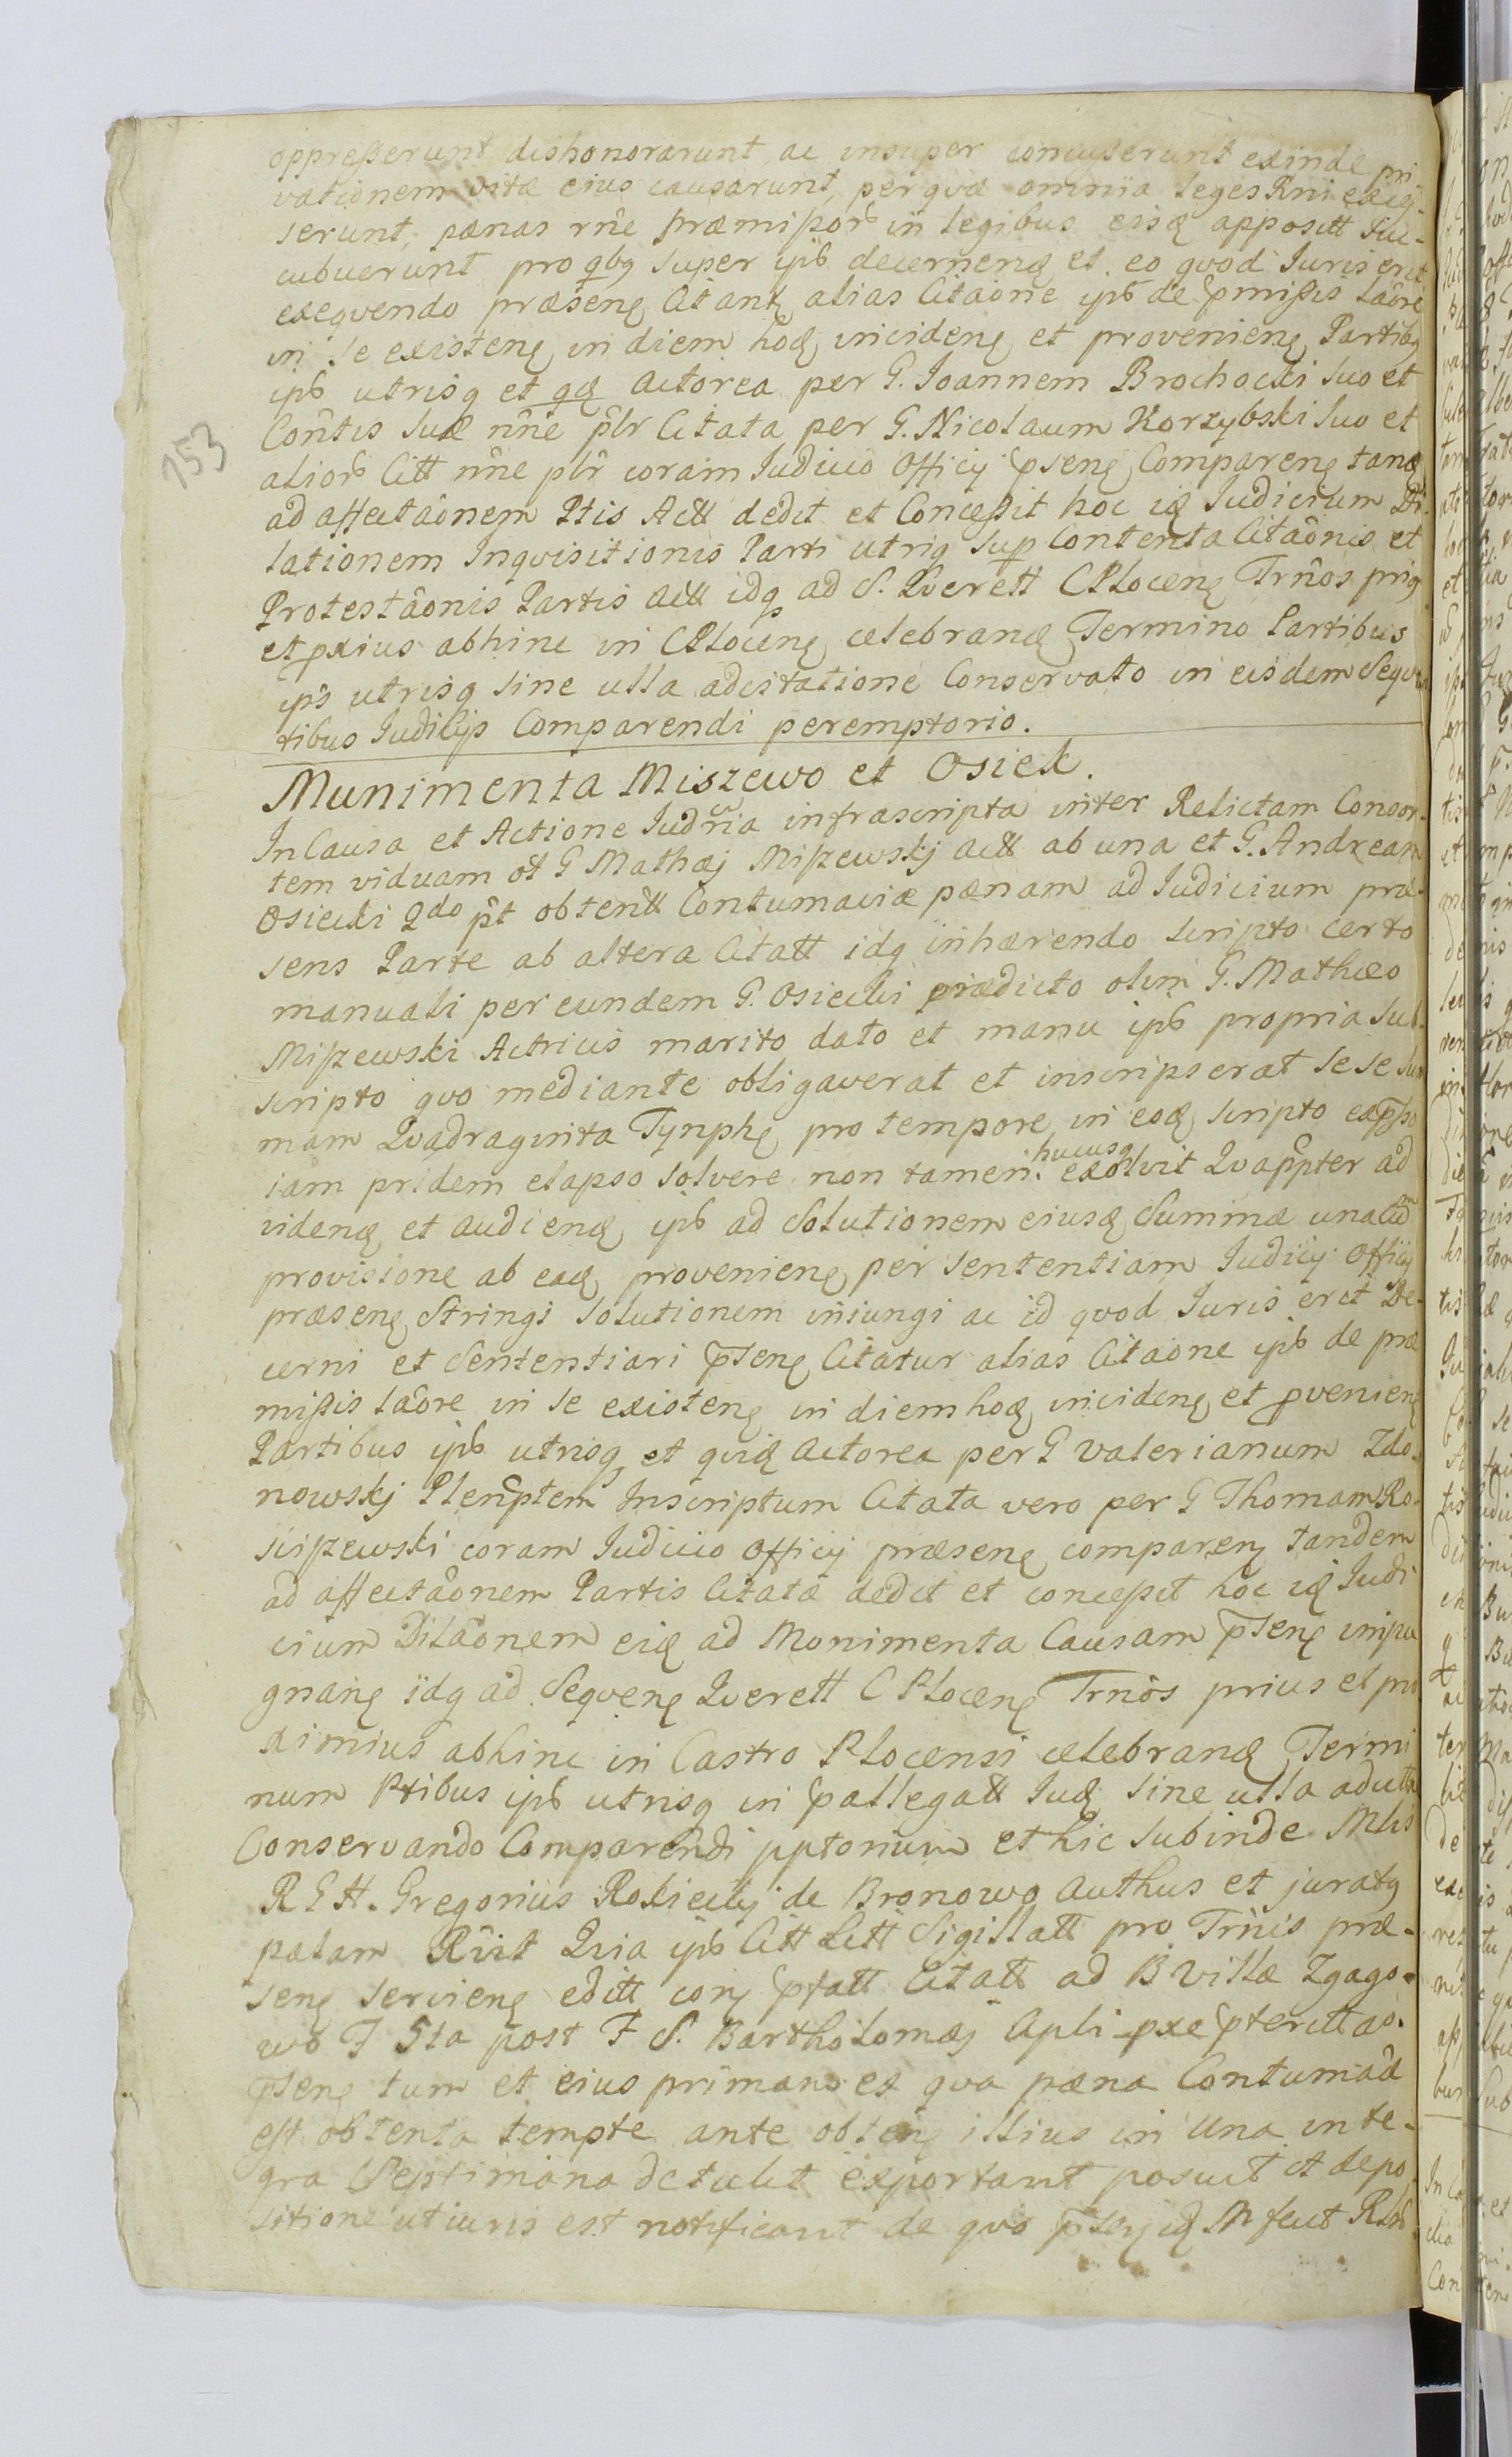 oppresserunt dishonorarunt ac insuper concusserunt exinde pri-
vationem vitæ eius causarunt, per quæ omnia leges Rni exces-
serunt, pænas rne præmissor in legibus eisq apposit Suc-
cubuerunt pro qbg super ipb decerneng et eo quod Iuris erit
exequendo præseng Citant alias Citaône ipb de pmissis Latôre
in se existeng in diem hodg incideng et provenieng Partibg
ipb utrisq et qdg Actorea per G. Ioannem Brochocki suo et
Contis suæ nne plr Citata per G. Nicolaum Korzybski suo et
153
alior Citt nne plr coram Iudicio Officij pseng Compareng tandg
ad affectaônem Ptis Actt dedit et Concessit hoc idg Iudicium Di-
lationem Inqvisitionis Parti utriq sup Contenta Citaônis et
Protestaônis Partis Actt idq ad S. Qverell CPloceng Trnos prig
et pxius abhinc in CPloceng celebrandg Termino Partibus
ips utrisq sine ulla adcitatione Conservato in eisdem Seqven
tibus Iudicijs Comparendi peremptorio.
Munimenta Miszewo et Osiek.
In Causa et Actione Iudria infrascripta inter Relictam Consor-
tem viduam ol G Mathæj Miszewskj Actt ab una et G. Andream
Osiecki 2do pt obtentt Contumaciæ pænam ad Iudicium præ-
sens Parte ab altera Citatt idq inhærendo scripto certo
manuali per eundem G. Osiecki prædicto olim G. Mathæo
Miszewski Actricis marito dato et manu ipb propria sub-
scripto quo mediante obligaverat et inscripserat se se sum
mam Quadraginta Tynphg pro tempore in eodg scripto expsso
iam pridem elapso solvere non tamen hucusq exolvit Quappter ad
videndg et audiendg ipb ad Solutionem eiusdg Summæ una cum
provisione ab eadg provenieng per sententiam Iudicij Officij
præseng Stringi solutionem iniungi ac id quod Iuris erit De-
cerni et Sententiari pseng Citatur alias Citaône ipb de præ
missis Latôre in se existeng in diem hodg incideng et pvenieng
Partibus ipb utrisq et quidg Actorea per G Valerianum Zdo-
nowskj Plenptem Inscriptum Citata vero per G Thomam Ro-
sciszewski coram Iudicio Officij præseng compareng tandem
ad affectaônem Partis Citatæ dedit et concessit hoc idg Iudi
cium Dilaônem eidg ad Monimenta Causam pseng impu
gnang idq ad Seqveng Qverell C Ploceng Trnos prius et pro
ximius abhinc in Castro Plocensi celebrandg Termi
num Ptibus ipb utrisq in pallegatt Iudg sine ulla adcitta
Conservando Comparendi pptorium et hic subinde Mlis
R G H. Gregorius Rokicky de Bronowo Authus et juratg
palam Rvit Quia ipb Citt Litt Sigillatt pro Trnis præ-
seng servieng editt cong pfatt Citatt ad B villæ Zgago-
wo F 5ta post F S. Bartholomæj Apli pxe pteritt ao
pseng tum et eius primam ex qua pæna Contumad
est obtenta tempte ante obteng illius in una inte-
gra Septimana detulit exportavit posuit et depo
sitione ut iuris est notificavit de quo pseng idg M fecit Rlnb